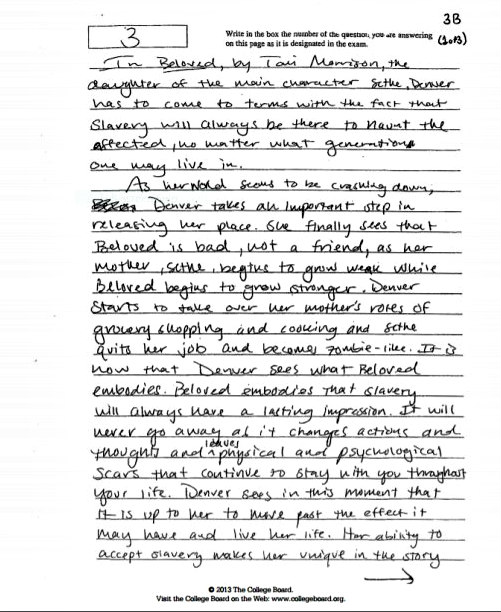 3B
3
Write in the box the number of the question you are answering
on this page as it is designated in the exam.
(1 of 3)
In Beloved, by Toni Morrison, the
daughter of the main character Sethe, Denver
has to come to terms with the fact that
Slavery will always be there to haunt the
affected, no matter what generations
one may live in.
As her world seems to be crashing down,
Denver takes an important step in
releasing her place. She finally sees that
Beloved is bad, not a friend, as her
mother, Sethe, begins to grow weak while
Beloved begins to grow stronger. Denver
Starts to take over her mother's roles of
grocery shopping and cooking and Sethe
quits her job and becomes zombie-like. It is
now that Denver sees what Beloved
embodies. Beloved embodies that slavery
will always have a lasting impression. It will
never go away as it changes actions and
thoughts and leaves physical and psychological
Scars that continue to stay with you throughout
your life. Denver sees in this moment that
It is up to her to move past the effect it
may have and live her life. Her ability to
accept slavery makes her unique in the story
© 2013 The College Board.
Visit the College Board on the Web: www.collegeboard.org.